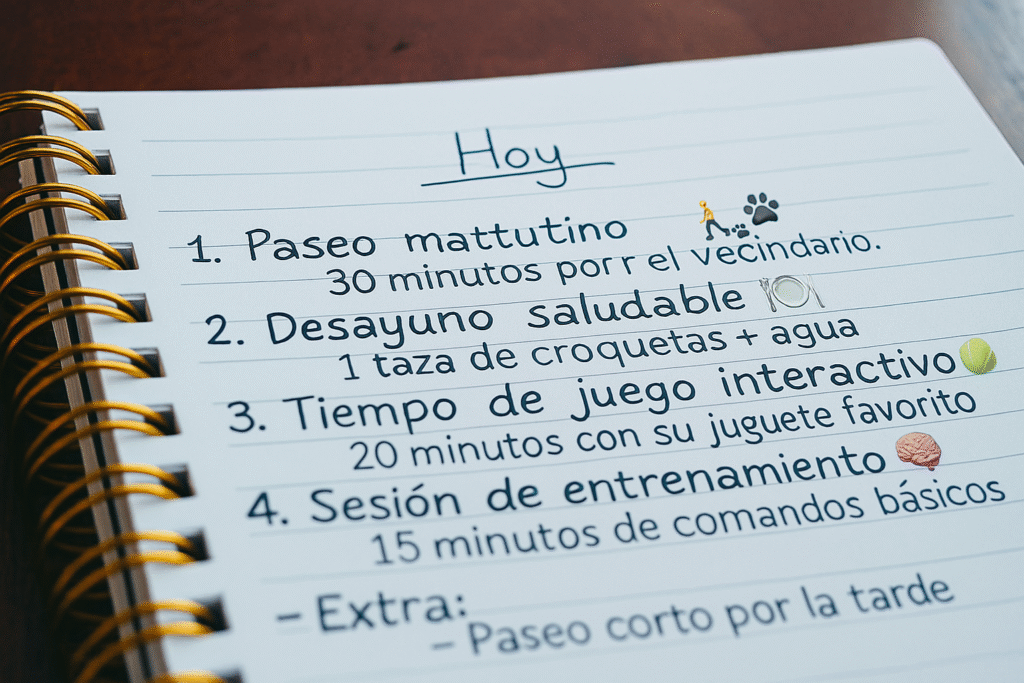 Hoy
1. Paseo mattutino
30 minutos porr el vecindario.
2. Desayuno saludable
1 taza de croquetas + agua
3. Tiempo de juego interactivo
20 minutos con su juguete favorito
4. Sesión de entrenamiento
15 minutos de comandos básicos
- Extra:
- Paseo corto por la tarde